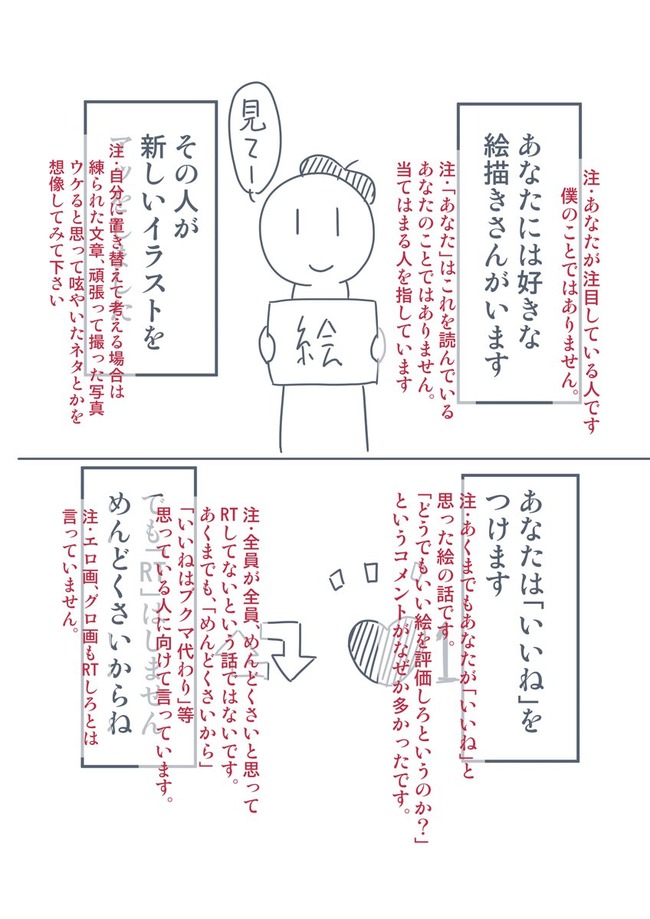 注・あなたが注目している人です
僕のことではありません。
あなたには好きな
絵描きさんがいます
注・「あなた」はこれを読んでいる
あなたのことではありません。
当てはまる人を指しています
見てー
絵
その人が
新しいイラストを
注・自分に置き替えて考える場合は
練られた文章、頑張って撮った写真
ウケると思って呟やいたネタとかを
想像してみて下さい
あなたは「いいね」を
つけます
注・あくまでもあなたが「いいね」と
思った絵の話です。
「どうでもいい絵を評価しろというのか?」
というコメントがなぜか多かったです。
1
注・全員が全員、めんどくさいと思って
RTしてないという話ではないです。
あくまでも、「めんどくさいから」
「いいねはブクマ代わり」等
思っている人に向けて言っています。
でも「RT」はしません
めんどくさいからね
注・エロ画、グロ画もRTしろとは
言っていません。